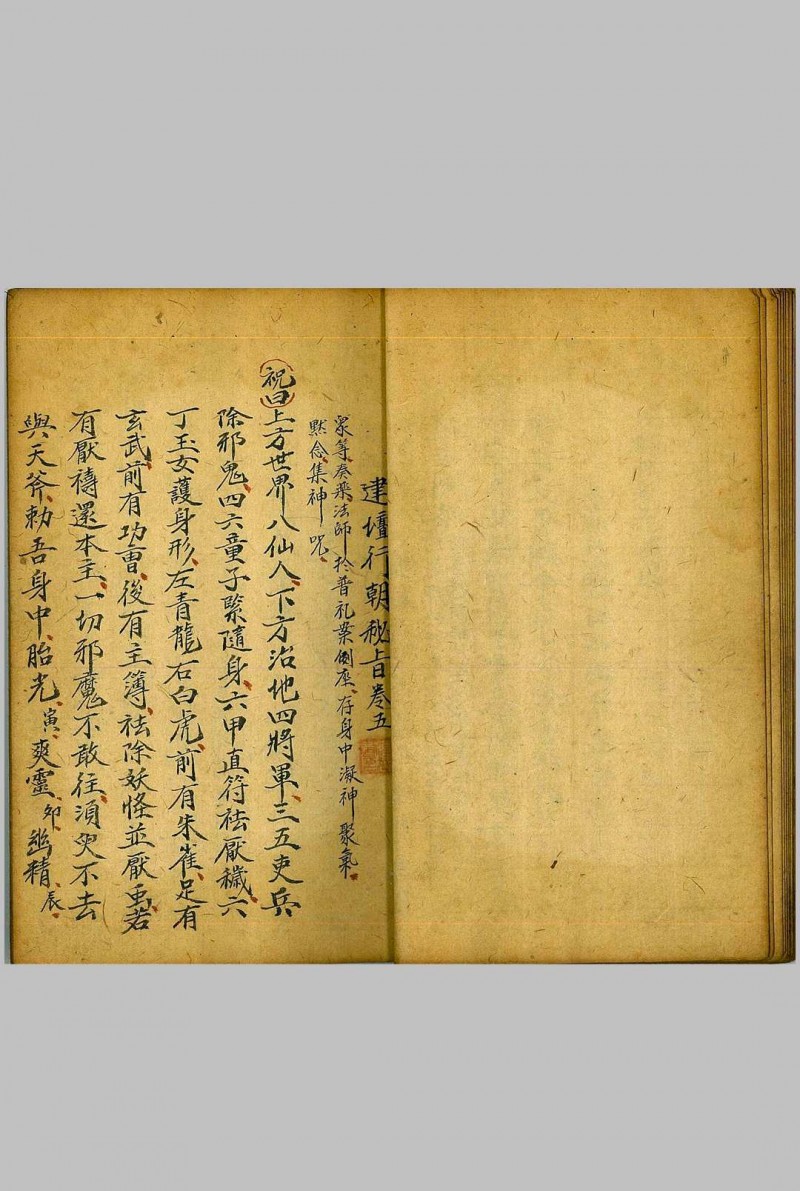 建壇行朝秘旨卷五
眾等奏樂法師於普礼案側座存身中凝神聚氣
默念集神咒
祝曰上方世界八仙人下方治地四將軍三五吏兵
除邪鬼四六童子緊隨身六甲直符祛厭穢六
丁玉女護身形左青龍右白虎前有朱雀足有
玄武前有功曹後有主簿祛除妖怪並厭蠱若
有厭禱還本主一切邪魔不敢往須臾不去
與天斧勅吾身中胎光寅爽靈卯幽精辰